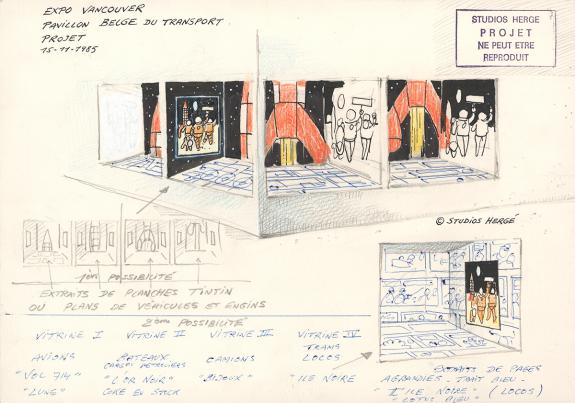 EXPO VANCOUVER
PAVILLON BELGE DU TRANSPORT
PROJET
15-11-1985
STUDIOS HERGE
PROJET
NE PEUT ETRE
REPRODUIT
© STUDIOS HERGÉ
1ère POSSIBILITÉ
EXTRAITS DE PLANCHES TINTIN
OU PLANS DE VÉHICULES ET ENGINS
2ème POSSIBILITÉ
VITRINE I VITRINE II VITRINE III VITRINE IV
AVIONS BATEAUX CAMIONS TRAMS
CARGOS PETROLIERS LOCOS
"VOL 714" "L'OR NOIR" "BIJOUX" "ILE NOIRE
"LUNE" COKE EN STOCK
EXTRAITS DE PAGES
AGRANDIES - TRAIT BLEU -
ILE NOIRE" (LOCOS)
"LOTUS BLEU"